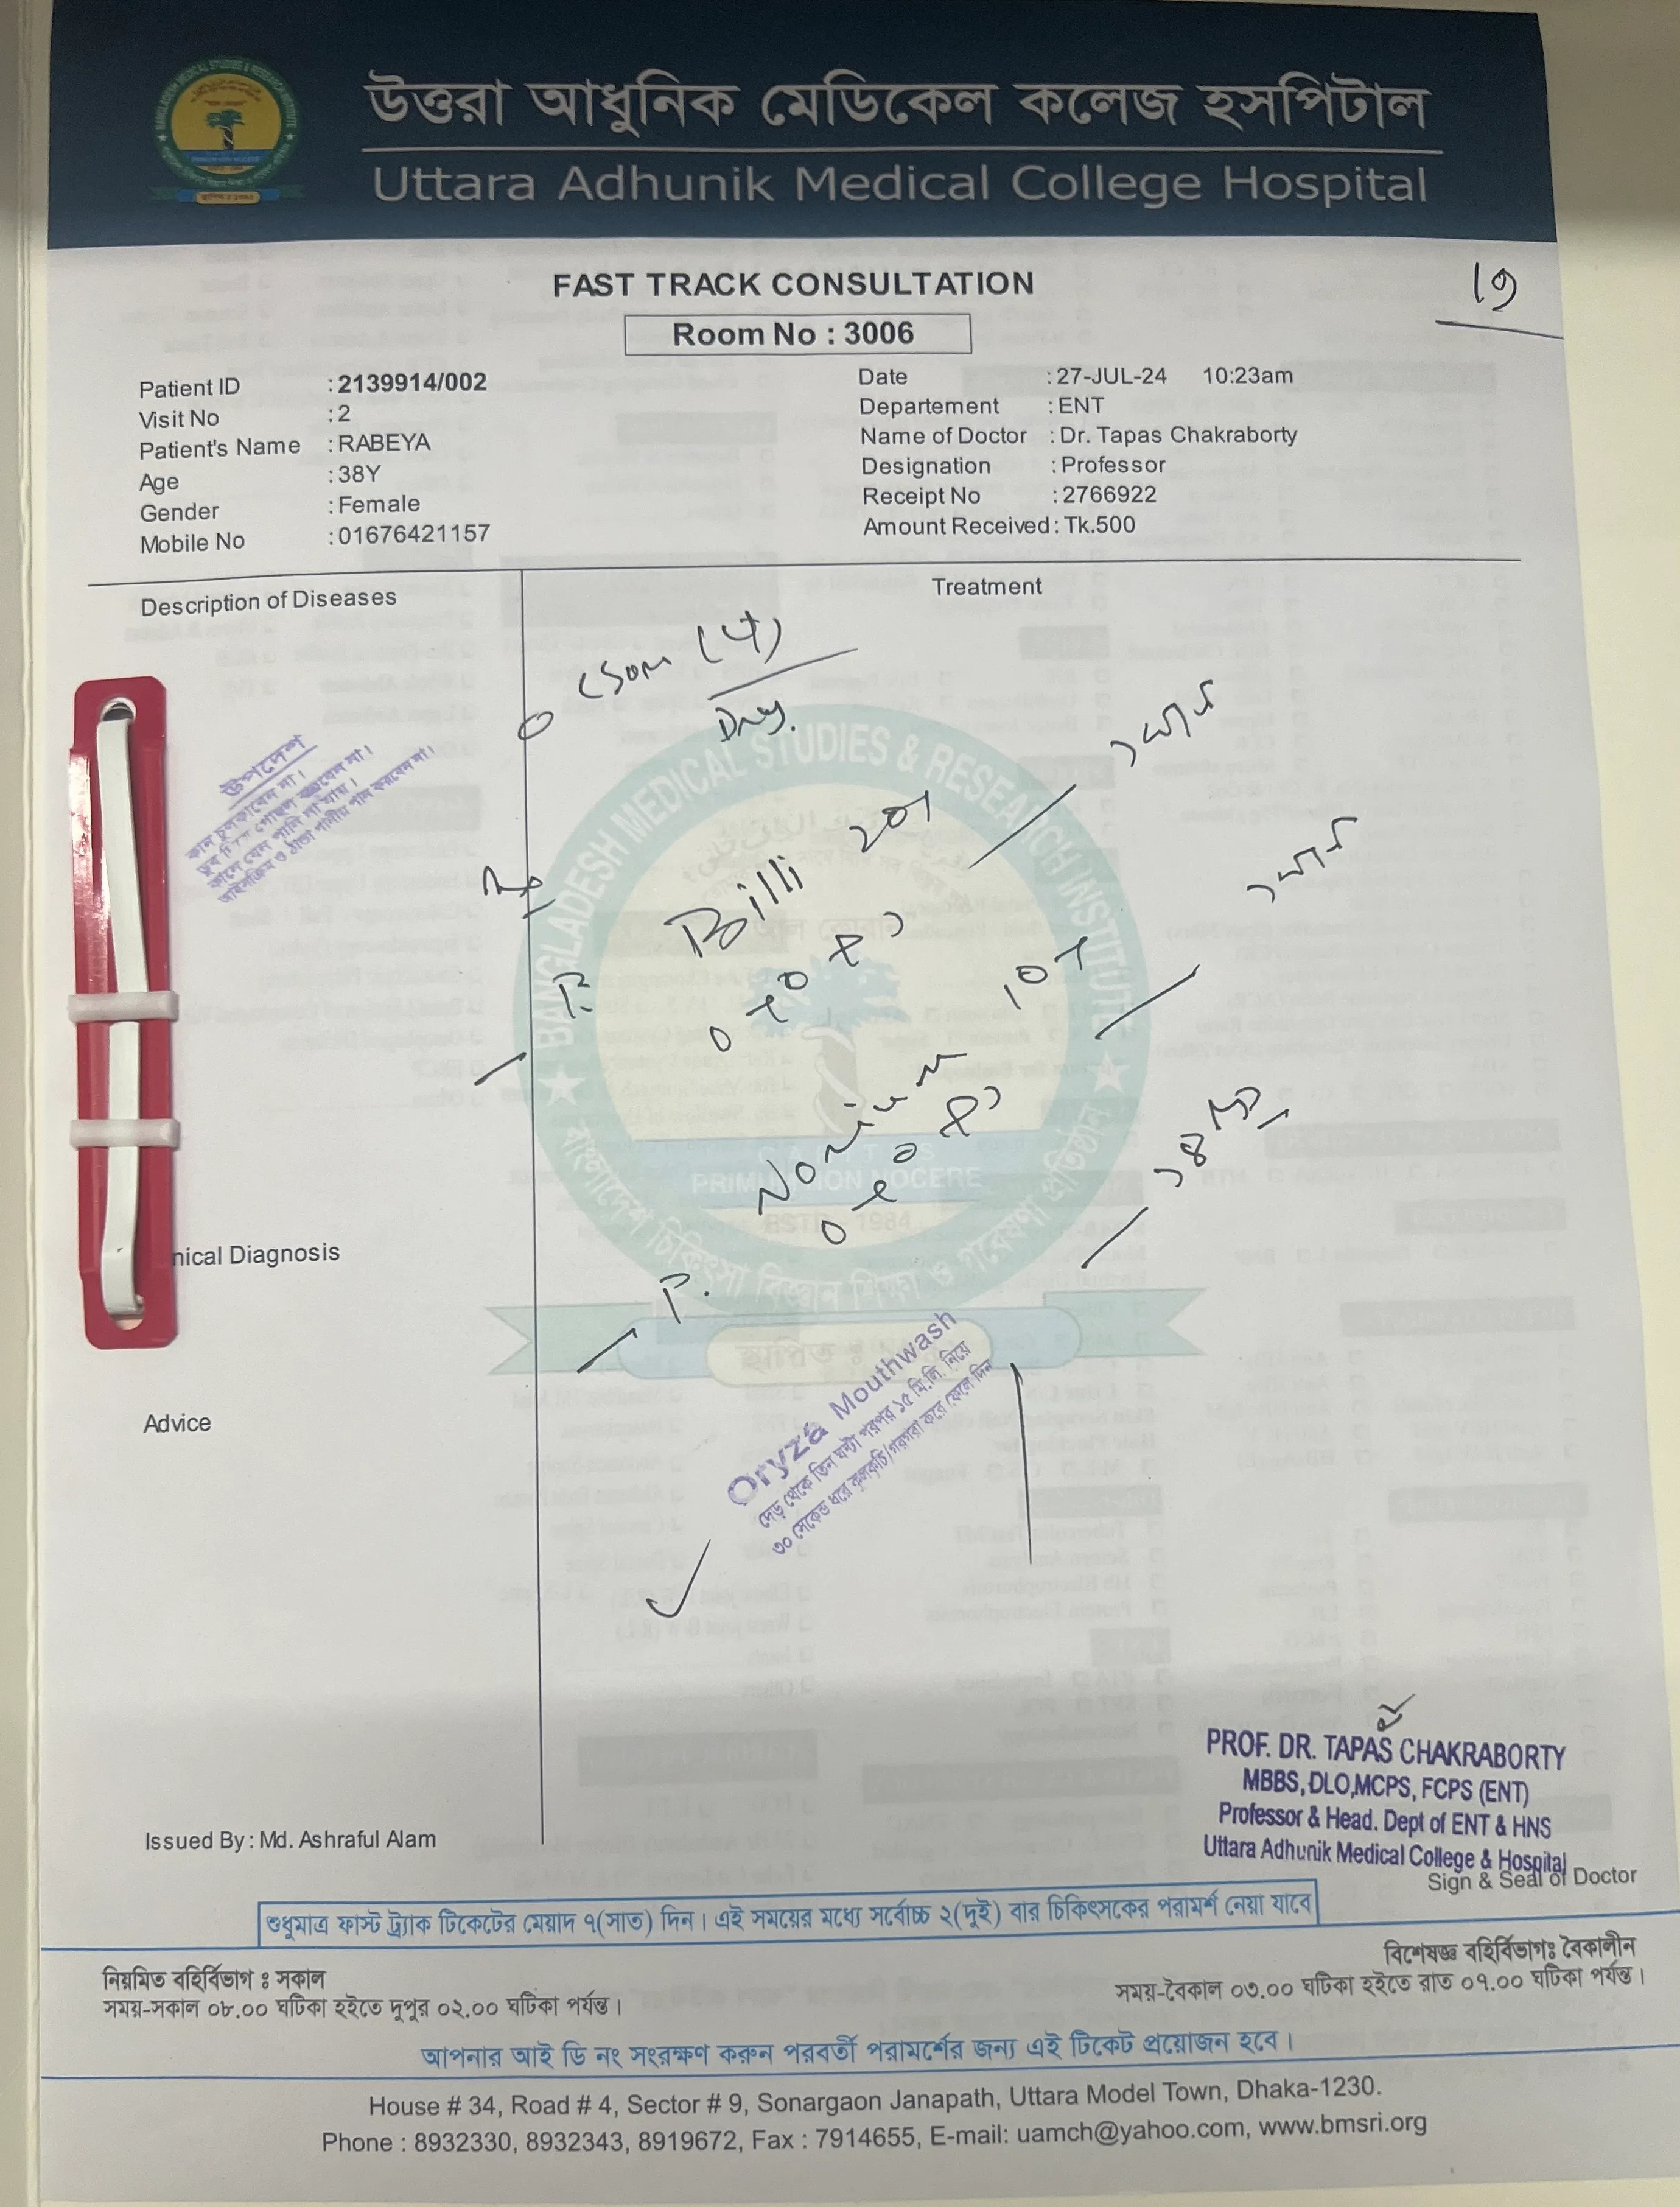 উত্তরা আধুনিক মেডিকেল কলেজ হসপিটাল
Uttara Adhunik Medical College Hospital
FAST TRACK CONSULTATION
Room No : 3006
Patient ID : 2139914/002
Visit No : 2
Patient's Name : RABEYA
Age : 38Y
Gender : Female
Mobile No : 01676421157
Date : 27-JUL-24 10:23am
Departement : ENT
Name of Doctor : Dr. Tapas Chakraborty
Designation : Professor
Receipt No : 2766922
Amount Received : Tk.500
Description of Diseases
Treatment
CSOM (4)
Dry.
উপদেশ
কান চুলকাবেন না।
কানে যেন পানি না যায়।
আইসক্রিম ও ঠান্ডা পানীয় পান করবেন না।
BANGLADESH MEDICAL STUDIES & RESEARCH INSTITUTE
T. Billi 20
10
PRIMUM NON NOCERE
ESTD 1984
বাংলাদেশ চিকিৎসা বিজ্ঞান শিক্ষা ও গবেষণা প্রতিষ্ঠান
T.
nical Diagnosis
Oryza Mouthwash
দেড় থেকে তিন ঘন্টা পরপর ১৫ মি.লি. নিয়ে
৩০ সেকেন্ড ধরে কুলকুচি/গরগরা করে ফেলে দিন
Advice
PROF. DR. TAPAS CHAKRABORTY
MBBS, DLO,MCPS, FCPS (ENT)
Professor & Head. Dept of ENT & HNS
Uttara Adhunik Medical College & Hospital
Sign & Seal of Doctor
Issued By : Md. Ashraful Alam
শুধুমাত্র ফাস্ট ট্র্যাক টিকেটের মেয়াদ ৭(সাত) দিন। এই সময়ের মধ্যে সর্বোচ্চ ২(দুই) বার চিকিৎসকের পরামর্শ নেয়া যাবে
নিয়মিত বহির্বিভাগ ঃ সকাল
সময়-সকাল ০৮.০০ ঘটিকা হইতে দুপুর ০২.০০ ঘটিকা পর্যন্ত।
বিশেষজ্ঞ বহির্বিভাগঃ বৈকালীন
সময়-বৈকাল ০৩.০০ ঘটিকা হইতে রাত ০৭.০০ ঘটিকা পর্যন্ত।
আপনার আই ডি নং সংরক্ষণ করুন পরবর্তী পরামর্শের জন্য এই টিকেট প্রয়োজন হবে।
House # 34, Road # 4, Sector # 9, Sonargaon Janapath, Uttara Model Town, Dhaka-1230.
Phone : 8932330, 8932343, 8919672, Fax : 7914655, E-mail: uamch@yahoo.com, www.bmsri.org